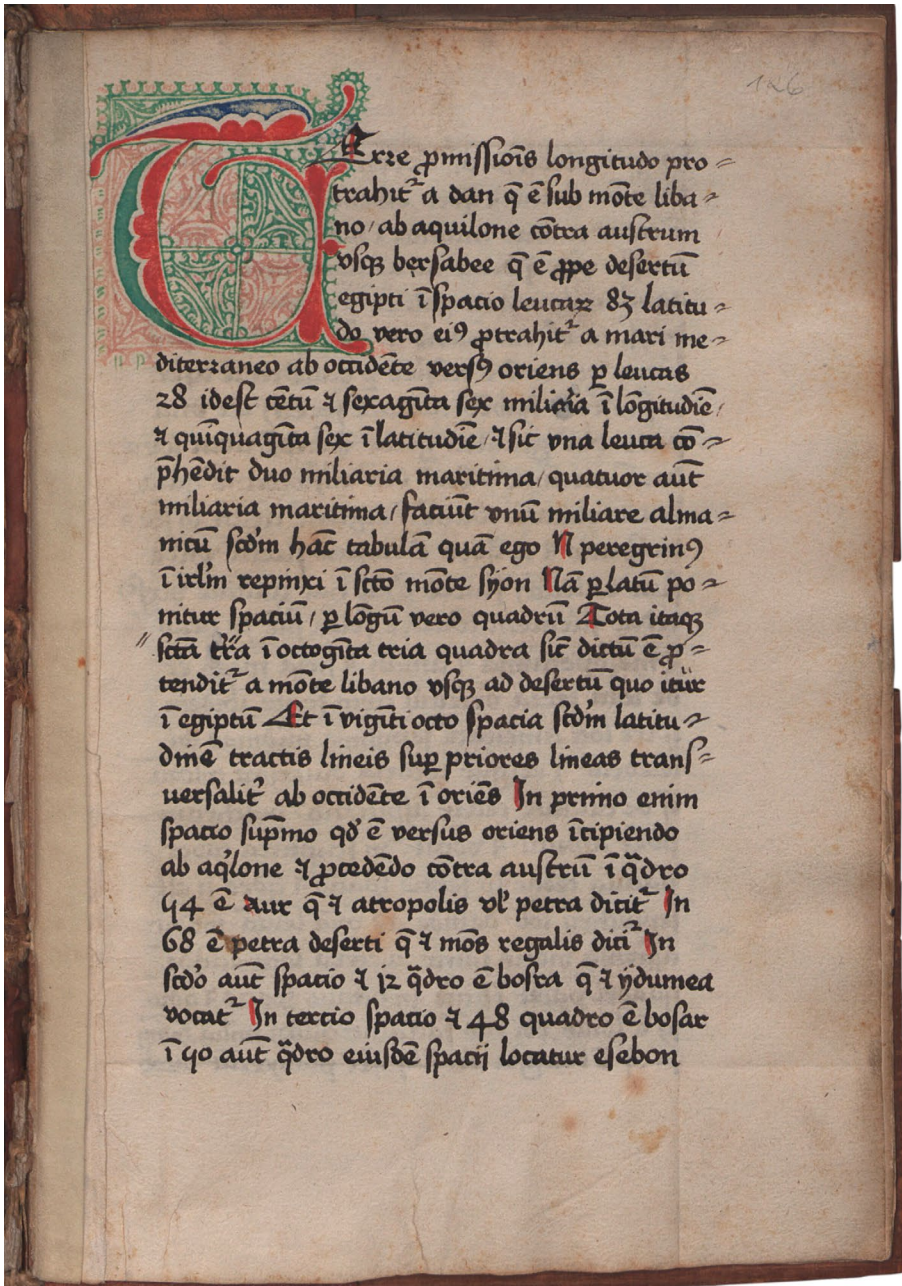 126
TErre ꝓmissiōis longitudo pro⸗
trahit᷑ a dan q̄ ē sub mōte liba⸗
no / ab aquilone cōtra austrum
vsqꝫ bersabee q̄ ē ꝓpe desertū
egipti ī spacio leucaꝝ 83 latitu⸗
do vero eiꝰ ꝓtrahit᷑ a mari me⸗
diterraneo ab occidēte versꝰ oriens ꝑ leucas
28 idest cētū ⁊ sexagīta sex miliaria ī lōgitudīe /
⁊ quīquagīta sex ī latitudīe / ⁊ sic vna leuca cō⸗
p̄hēdit duo miliaria maritima / quatuor aūt
miliaria maritima / faciūt vnū miliare alma⸗
nicū scd̓m hāc tabulā quā ego N peregrinꝰ
ī irl̓m repinxi ī sctō mōte syon Nā ꝑ latū po⸗
nitur spaciū / ꝑ lōgū vero quadrū Tota itaqꝫ
sctā tr̄a ī octogīta tria quadra sic̄ dictū ē ꝓ⸗
tendit᷑ a mōte libano vsqꝫ ad desertū quo itur
ī egiptū Et ī vigīti octo spacia scd̓m latitu⸗
dinē tractis lineis suꝑ priores lineas trans⸗
uersalit᷑ ab occidēte ī oriēs In primo enim
spacio sup̄mo qd̓ ē versus oriens īcipiendo
ab aq̓lone ⁊ ꝓcedēdo cōtra austrū ī q̄dro
54 ē aur q̄ ⁊ atropolis vl̓ petra dicit᷑ In
68 ē petra deserti q̄ ⁊ mōs regalis dici᷑ In
scd̓o aūt spacio ⁊ 12 q̄dro ē bosra q̄ ⁊ ydumea
vocat᷑ In tercio spacio ⁊ 48 quadro ē bosar
ī 50 aūt q̄dro eiusdē spacij locatur esebon